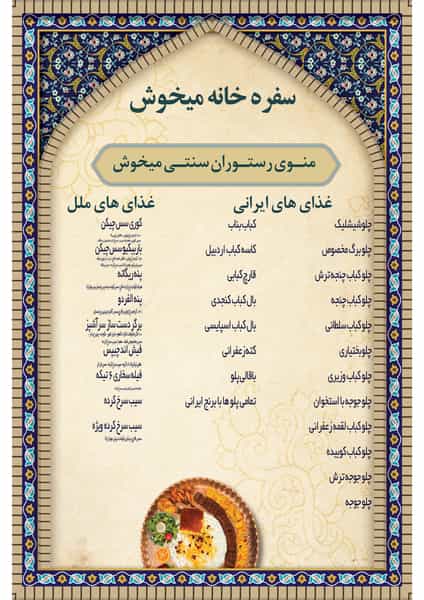 سفره خانه میخوش
منوی رستوران سنتی میخوش
غذای های ایرانی
چلو شیشلیک
چلو برگ مخصوص
چلو کباب چنجه ترش
چلو کباب چنجه
چلو کباب سلطانی
چلو بختیاری
چلو کباب وزیری
چلو جوجه با استخوان
چلو کباب لقمه زعفرانی
چلو کباب کوبیده
چلو جوجه ترش
چلو جوجه
کباب بناب
کاسه کباب اردبیل
قارچ کبابی
بال کباب کنجدی
بال کباب اسپایسی
کته زعفرانی
باقالی پلو
تمامی پلو ها با برنج ایرانی
غذای های ملل
کوری سس چیکن
باربیکیو سس چیکن
پنه ریگاته
پنه الفردو
برگر دست ساز سرآشپز
فیش اند چیپس
فیله سخاری ۶ تیکه
سیب سرخ کرده
سیب سرخ کرده ویژه